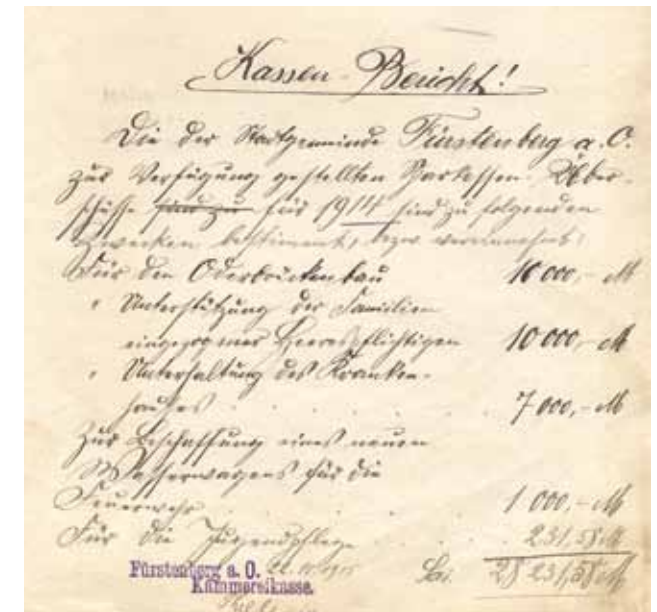 Kassen-Bericht!
Die der Stadtgemeinde Fürstenberg a. O.
zur Verfügung gestellten Sparkassen-Über-
schüsse sind zu für 1914 sind zu folgenden
Zwecken bestimmt, bezw. vereinnahmt:
Für den Oderbrückenbau 10 000,- M
" Unterstützung der Familien
eingezogener Heerespflichtigen 10 000,- M
" Unterhaltung des Kranken-
hauses 7 000,- M
Zur Beschaffung eines neuen
Wasserwagens für die
Feuerwehr 1 000,- M
Für die Jugendpflege 231,58 M
Sa. 28 231,58 M
Fürstenberg a. O. 1915
Kämmereikasse.